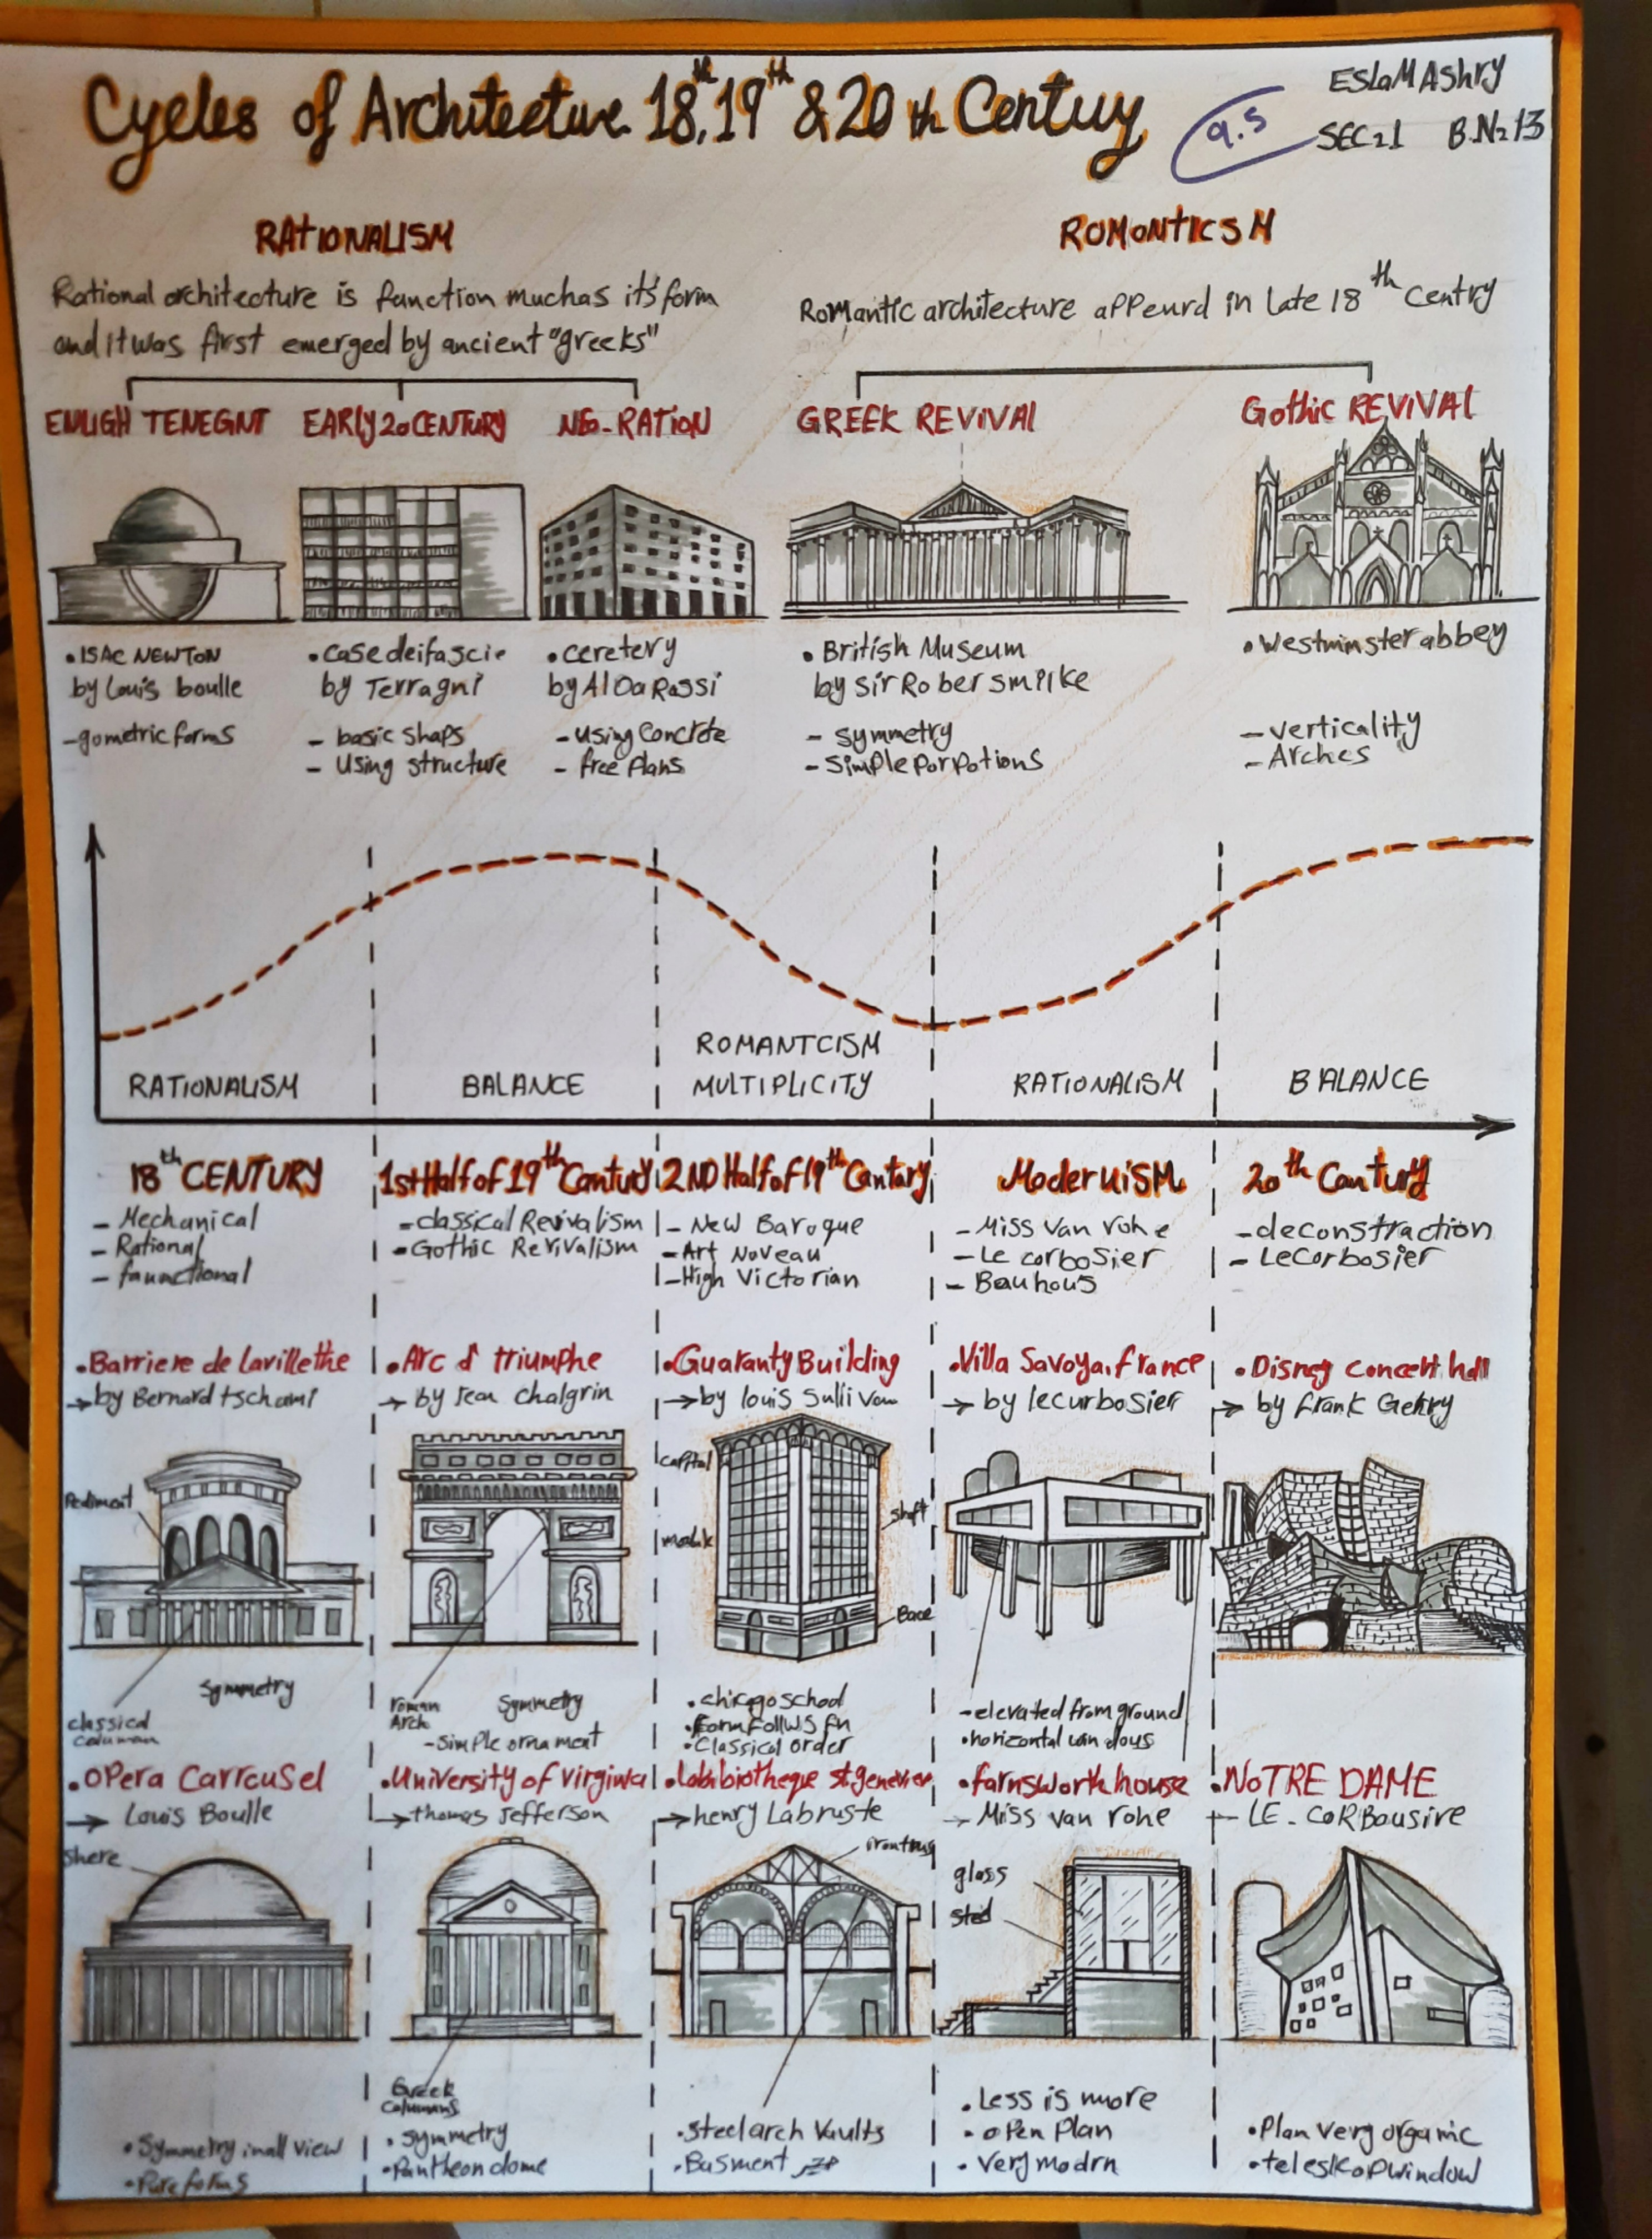 Cycles of Architecture 18th,19th & 20th Centuy
9.5
ESLaM AShry
SEC=1 B.N=13
RATIONALISM
Rational architecture is function muchas it's form
and it was first emerged by ancient "greeks"
ROMONTICSM
Romantic architecture appeurd in late 18th Centry
ENLIGH TENEGNT
EARLY 20 CENTURY
NEO-RATION
GREEK REVIVAL
Gothic REVIVAL
• ISAC NEWTON
by Louis boulle
- gometric forms
• Case deifascie
by Terragni
- basic shaps
- Using structure
• ceretery
by Al Oa Rossi
- Using Concrete
- free Plans
• British Museum
by sir Rober smilke
- symmetry
- Simple porpotions
• Westminster abbey
- verticality
- Arches
RATIONALISM
BALANCE
ROMANTCISM
MULTIPLICITY
RATIONALISM
BALANCE
18th CENTURY
- Mechanical
- Rational
- faunctional
1st Half of 19th Cantury
- classical Revivalism
- Gothic Revivalism
2ND Half of 19th Cantary
- New Baroque
- Art Noveau
- High Victorian
ModernisM
- Miss Van rohe
- Le corbosier
- Bauhous
20th Cantury
- deconstraction
- Lecorbosier
• Barriere de lavillethe
→ by Bernard tschami
Pediment
Symmetry
classical
column
• Arc d' triumphe
→ by Jean Chalgrin
roman
Arch
Symmetry
- simple ornament
• Guaranty Building
→ by louis Sullivan
capital
shaft
Bace
• chicgo school
• Form Follws fn
• Classical order
• Villa Savoya, france
→ by lecurbosier
- elevated from ground
• horizontal win dows
• Disney concert hall
→ by frank Gehry
• OPera Carreusel
→ Louis Boulle
Shere
• Symmetry in all view
• Pure forms
• University of virginia
→ thomas Jefferson
Greek
Columns
• symmetry
• Pantheon dome
• Labibiotheqe st.genevier
→ henry Labruste
• steel arch Vaults
• Basment
• farnsworth house
→ Miss van rohe
glass
steel
• Less is more
• oPen Plan
• Very modrn
• NoTRE DAME
LE-CoRBousire
• Plan Very organic
• teleskoPwindow